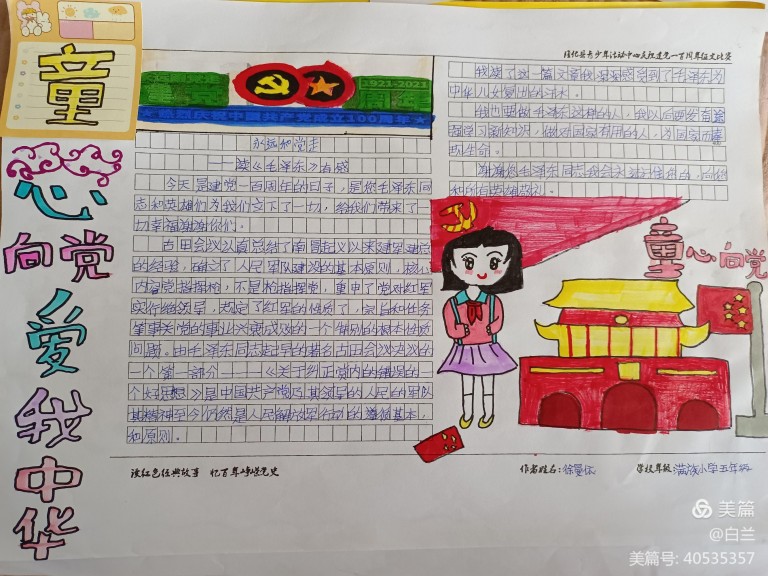 童
心
向党
爱
我
中
华
1921-2021
庆祝中国共产党成立100周年
永远和党走
——读《毛泽东》有感
今天是建党一百周年的日子，是您毛泽东同
志和英雄们为我们立下了一切，给我们带来了一
切幸福谢谢你们。
古田会议认真总结了南昌起义以来建军建党
的经验，确立了人民军队建设的基本原则，核心
内容党指挥枪，不是枪指挥党，重申了党对红军
实行绝领导，规定了红军的性质，宗旨和任务
肇事关党的事业兴衰成败的一个 的根本性质
问题。由毛泽东同志起草的著名古田会议决议的
一个第一部个——《关于纠正党内的错误的一
个好 想》是中国共产党及其领导的人民的军队
其精神至今仍然是人民解放军行动的遵循基本，
和原则。
青少年活动中心庆祝建党一百周年征文比赛
我读了这一篇文章我深深感受到了毛泽东为
中华儿女复出的
我也要做毛泽东这样的人，我从向要发奋
习新知识，做对国家有用的人，为国家而
生命。
谢谢您毛泽东同志我会
和所有英雄敬礼。
童心向党
读红色经典故事 忆百年峥嵘党史
作者姓名：徐曼依
学校年级 满族小学五年
美篇
@白兰
美篇号: 40535357